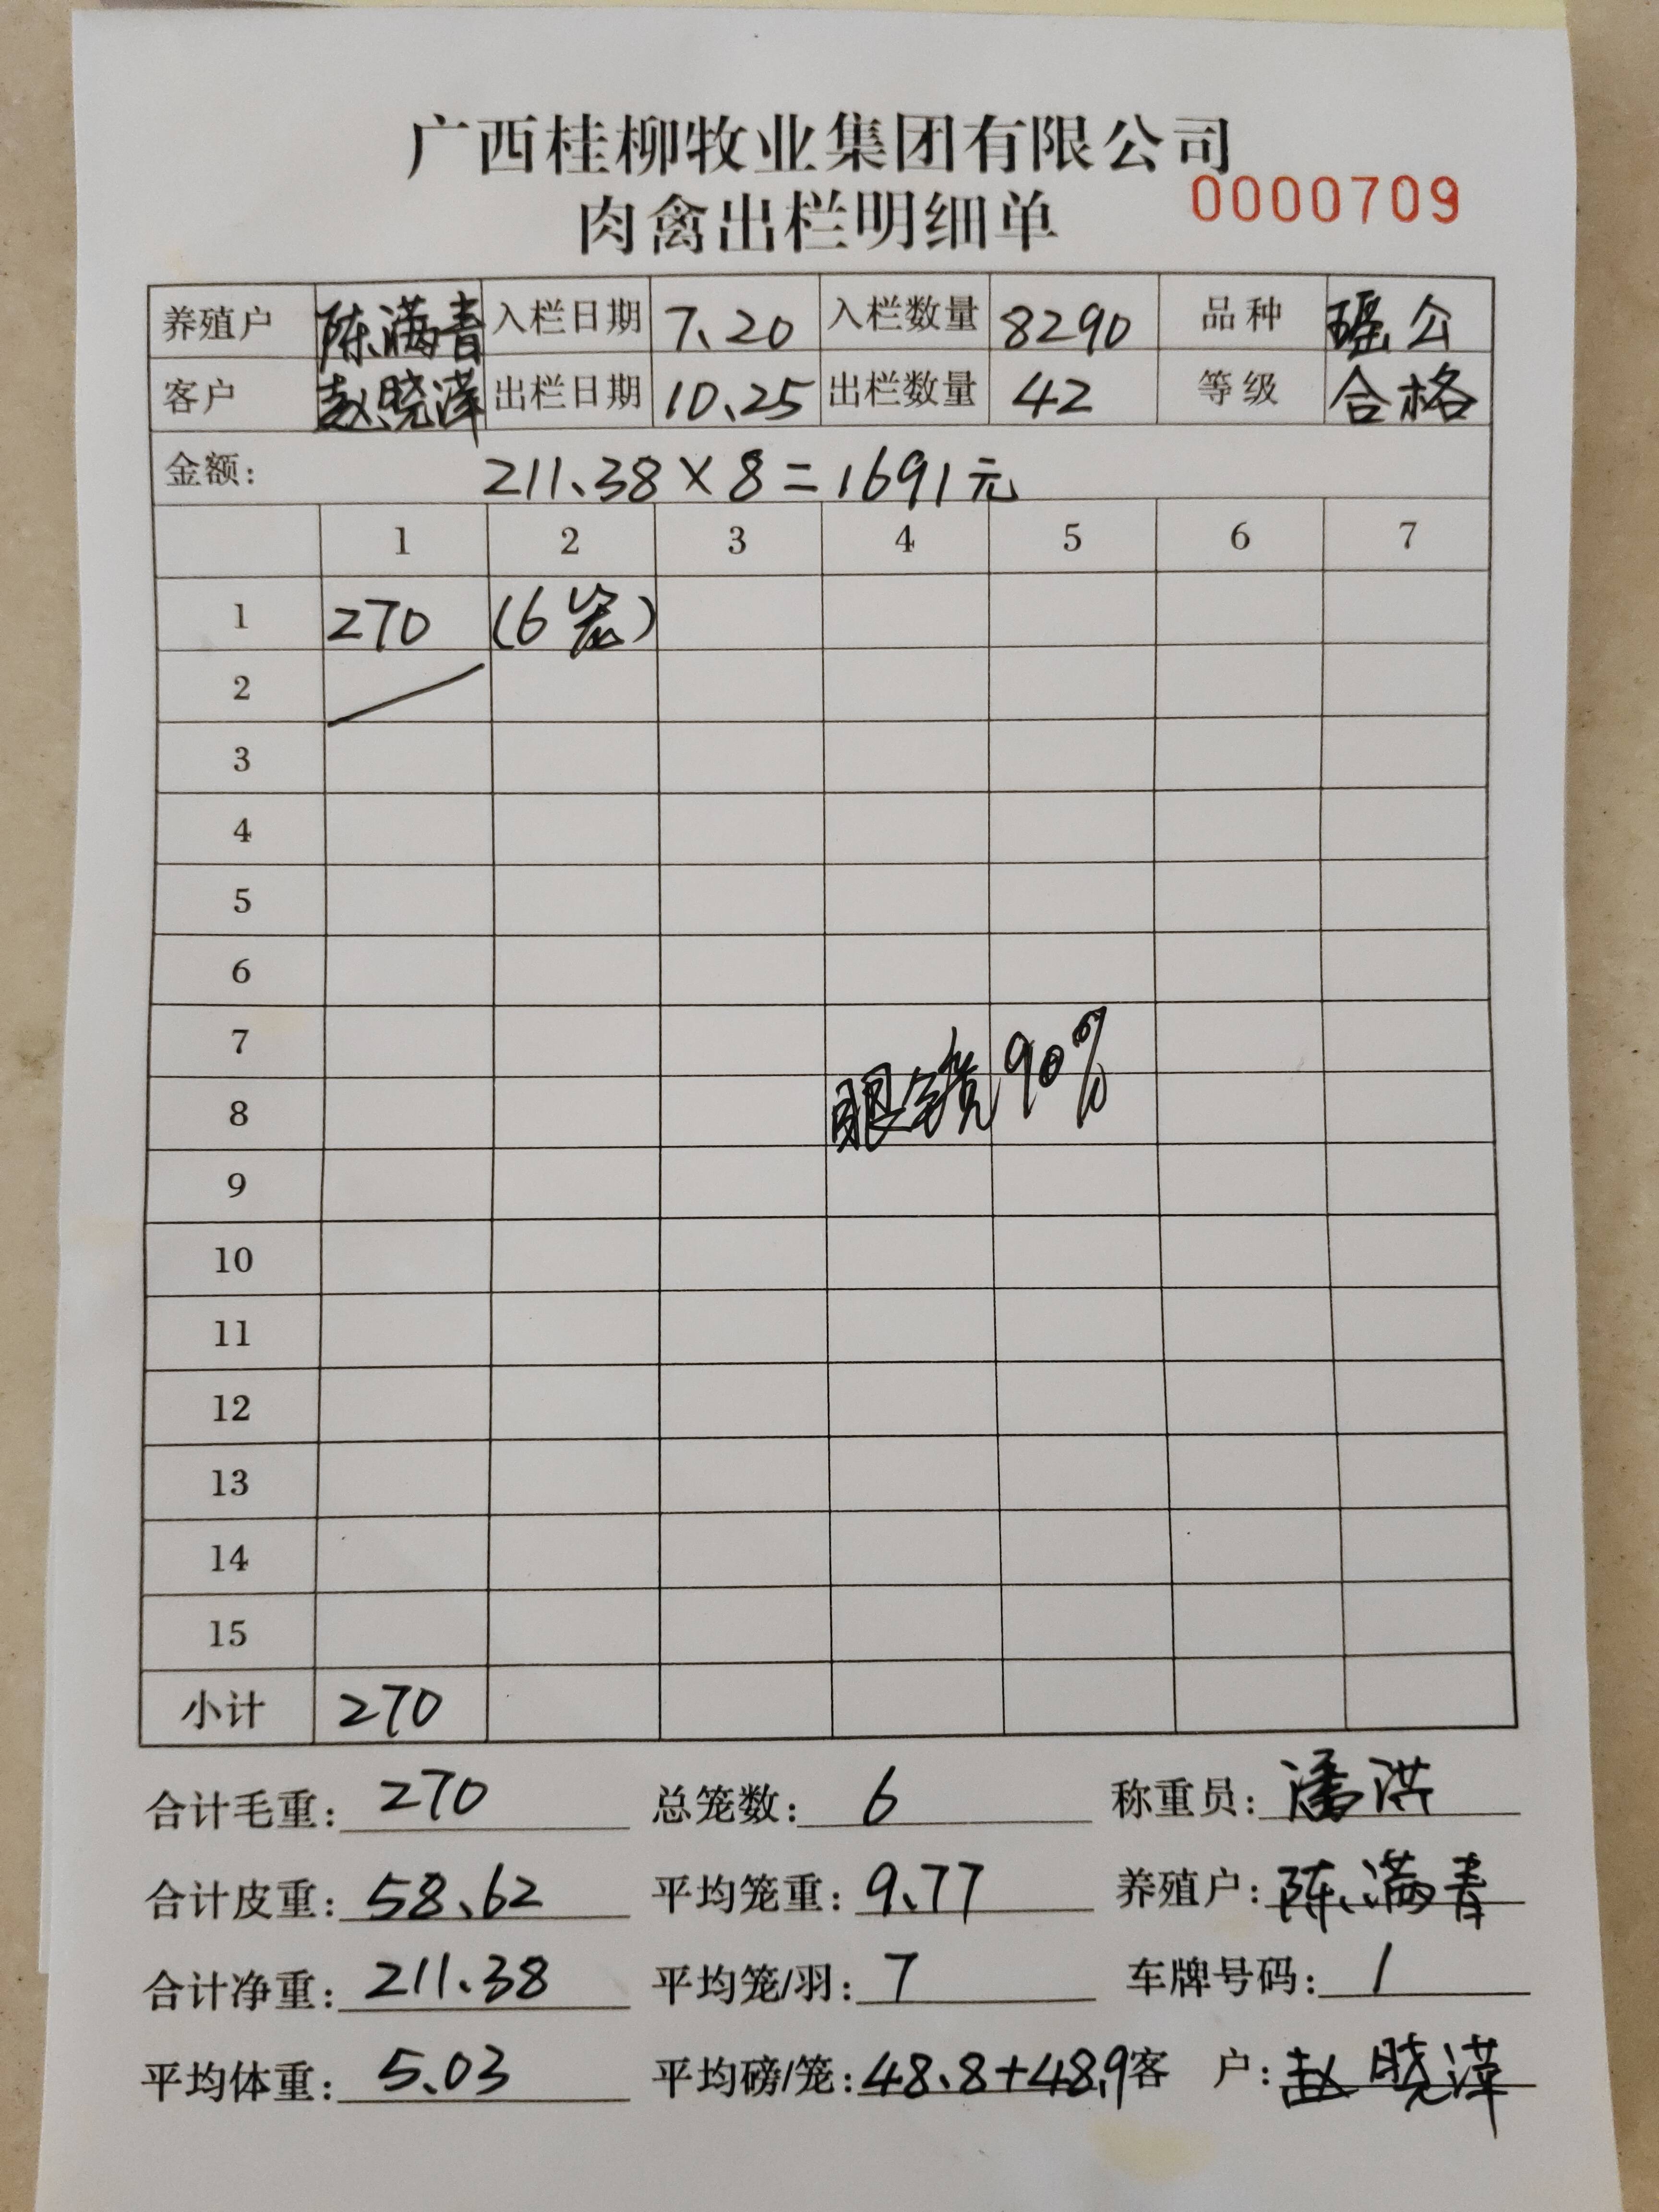 广西桂柳牧业集团有限公司
肉禽出栏明细单 0000709
养殖户 陈满青 入栏日期 7.20 入栏数量 8290 品种 瑶公
客户 赵晓萍 出栏日期 10.25 出栏数量 42 等级 合格
金额: 211.38×8=1691元
1 2 3 4 5 6 7
1 270 (6笼)
2
3
4
5
6
7
眼镜90%
8
9
10
11
12
13
14
15
小计 270
合计毛重: 270 总笼数: 6 称重员: 潘洪
合计皮重: 58.62 平均笼重: 9.77 养殖户: 陈满青
合计净重: 211.38 平均笼/羽: 7 车牌号码: 1
平均体重: 5.03 平均磅/笼: 48.8+48.9 客 户: 赵晓萍